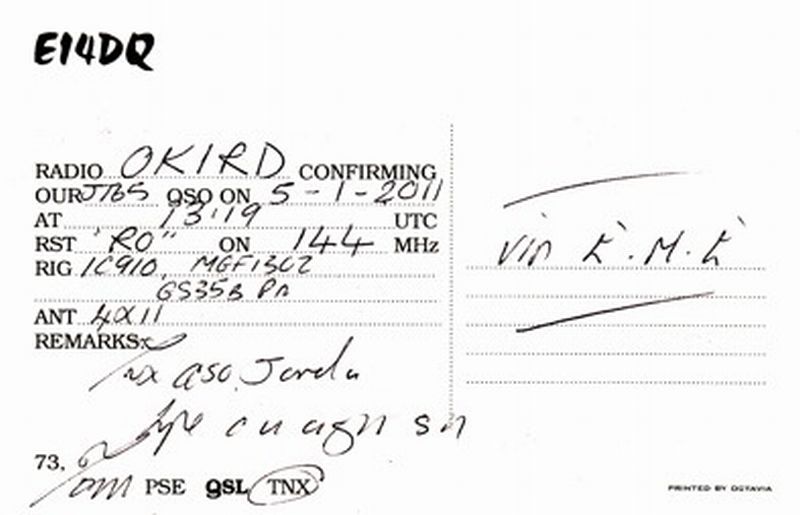 EI4DQ
RADIO OK1RD CONFIRMING
OUR JT65 QSO ON 5-1-2011
AT 13:19 UTC
RST "RO" ON 144 MHz
RIG IC910, MGF1302
GS35B PA
ANT 4X11
REMARKS:
Tnx QSO Jarda
hpe cu agn sn
73,
PSE QSL TNX
via E.M.E
PRINTED BY OCTAVIA